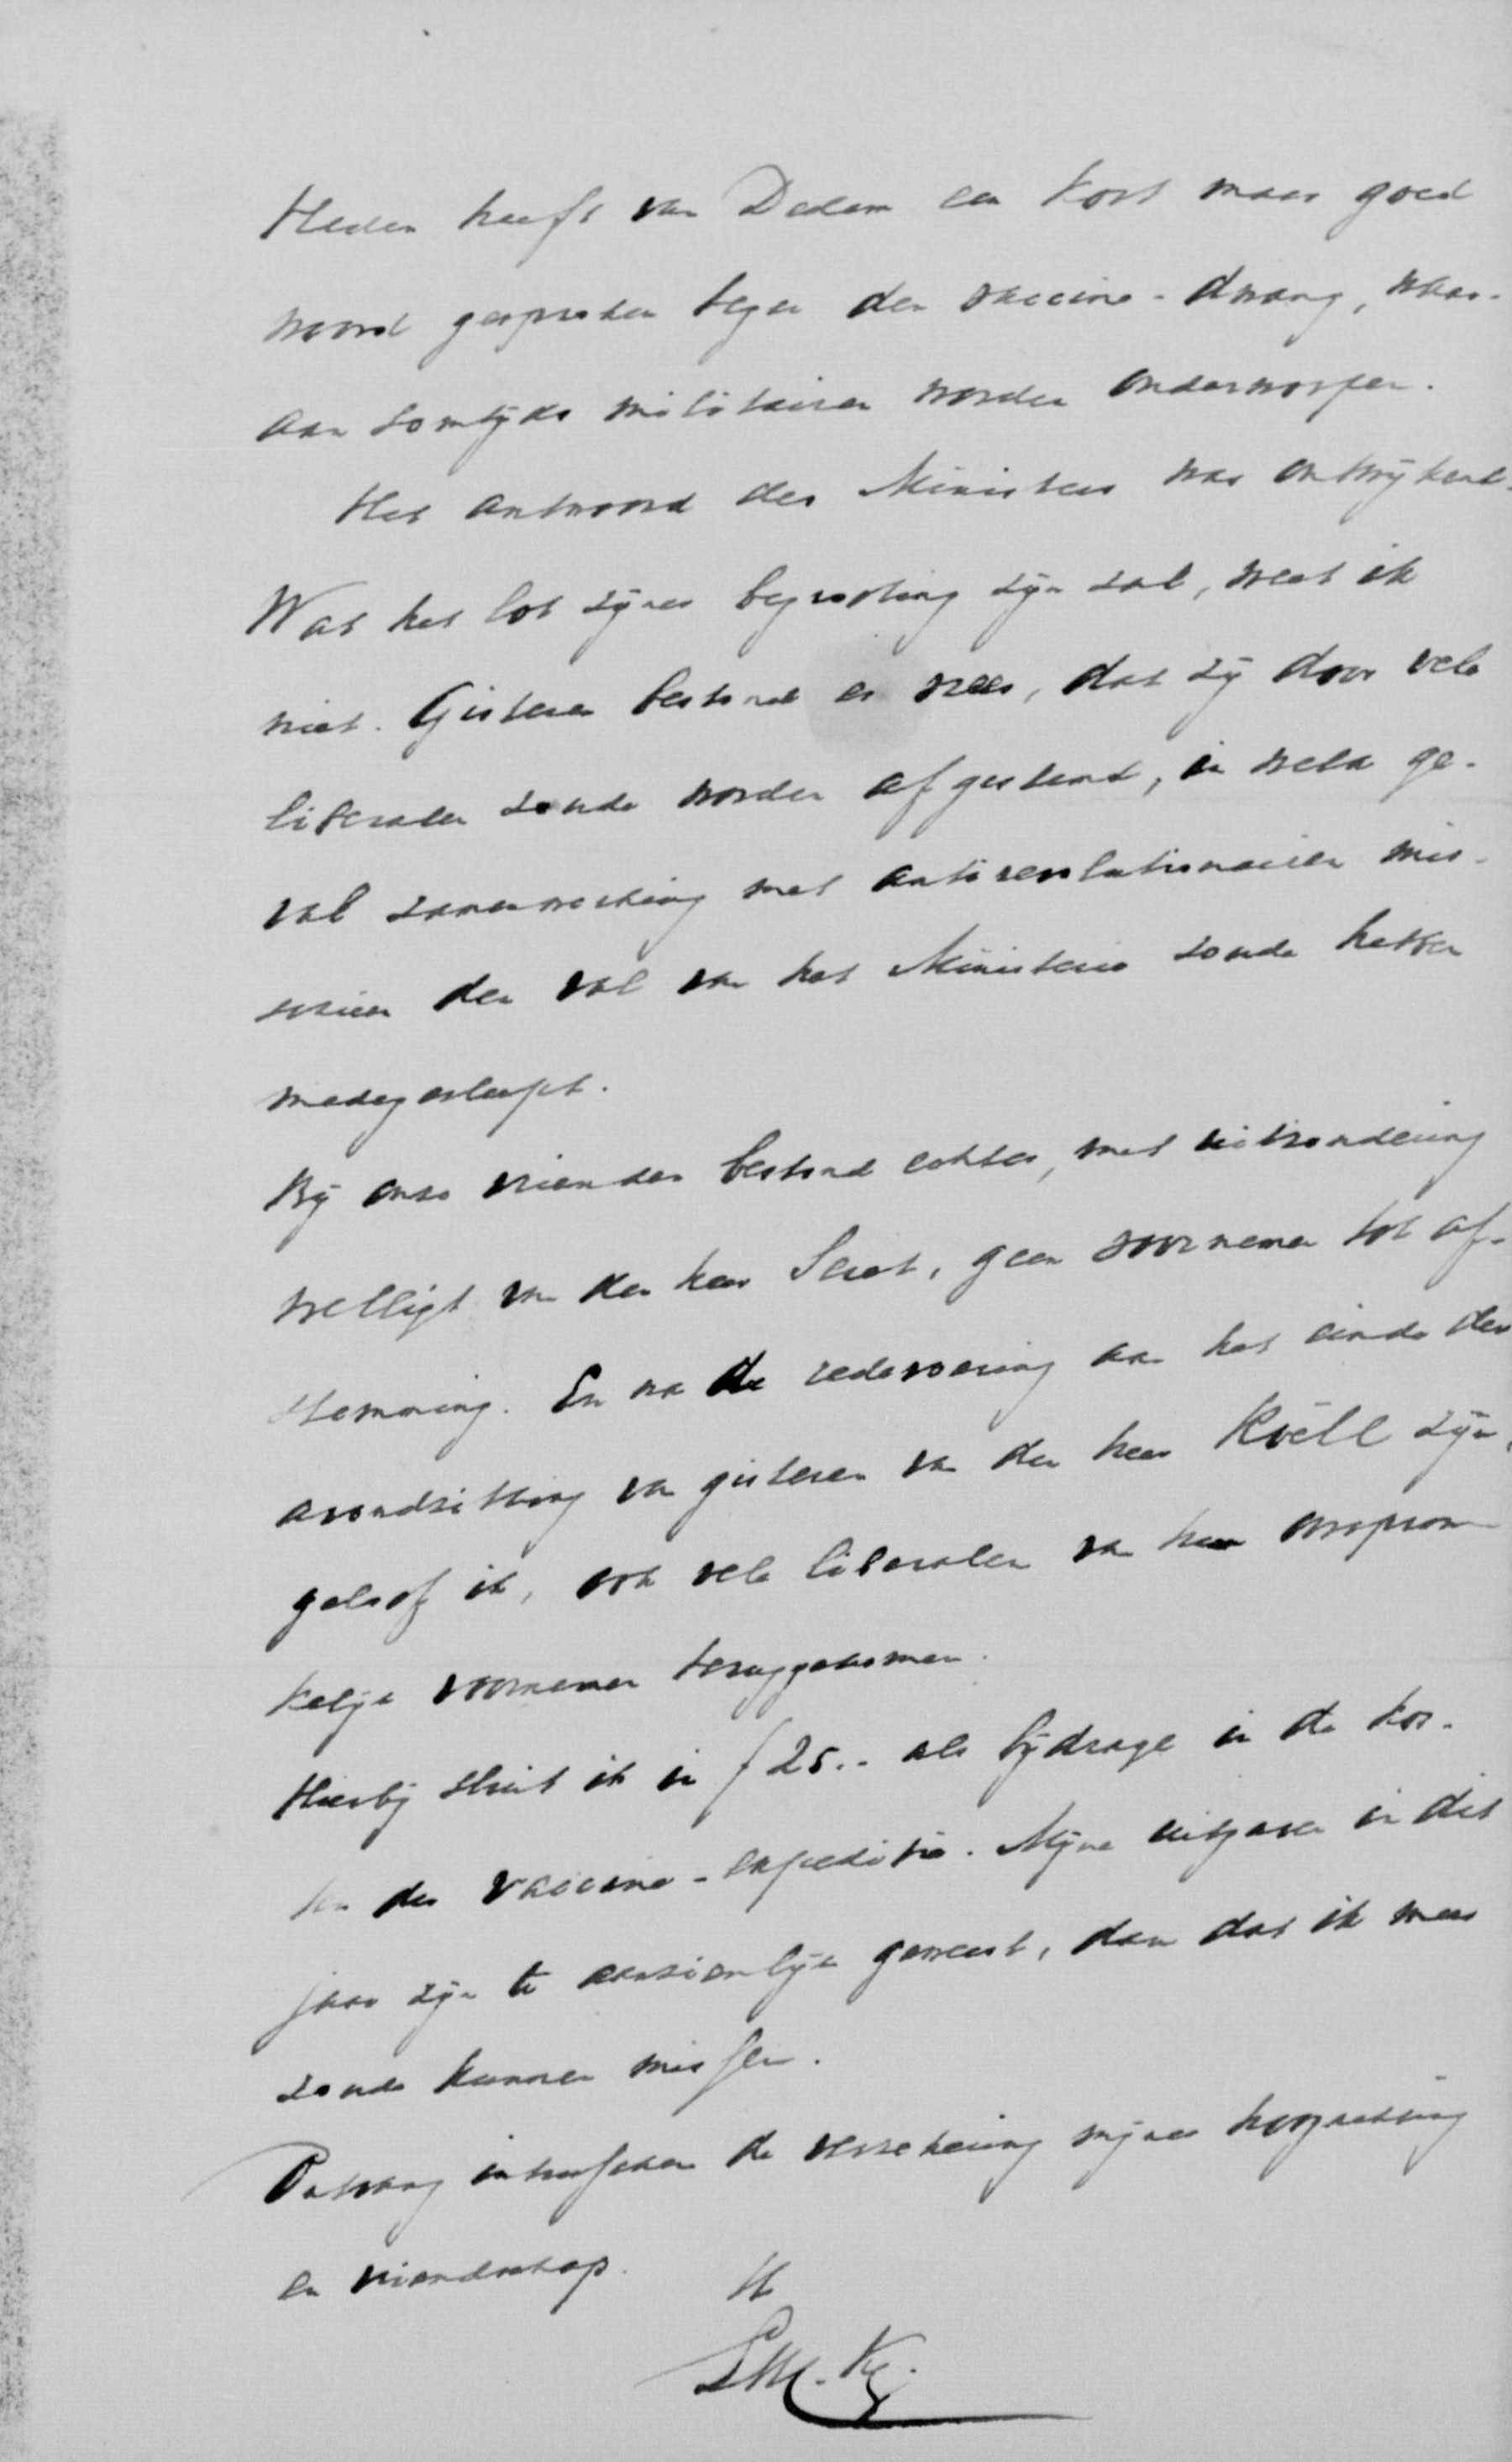 Heden heeft van Dedem een kort maar goed
woord gesproken tegen den vaccine-dwang, waar-
aan somtyds militairen worden onderworpen.
Het antwoord des Ministers was ontwykend.
Wat het lot zyner begrooting zyn zal, weet ik
niet. Gisteren bestond er vrees, dat zy door vele
liberalen zoude worden afgestemd, in welk ge-
val zamenwerking met antirevolutionairen mis-
schien den val van het Ministerie zoude hebben
medegesleept.
By onze vrienden bestond echter, met uitzondering
wellight van den heer Seret, geen voornemen tot af-
stemming. En na de redevoering aan het einde der
avondzitting van gisteren van den heer Roëll zyn,
geloof ik, ook vele liberalen van hun oorspron-
kelyk voornemen teruggekomen.
Hierby sluit ik in f 25.- als bydrage in de kos-
ten der vaccine-expeditie. Myne uitgaven in dit
jaar zyn te aanzienlyk geweest, dan dat ik meer
zoude kunnen missen.
Ontvang intusschen de verzekering myner hoogachting
en vriendschap.